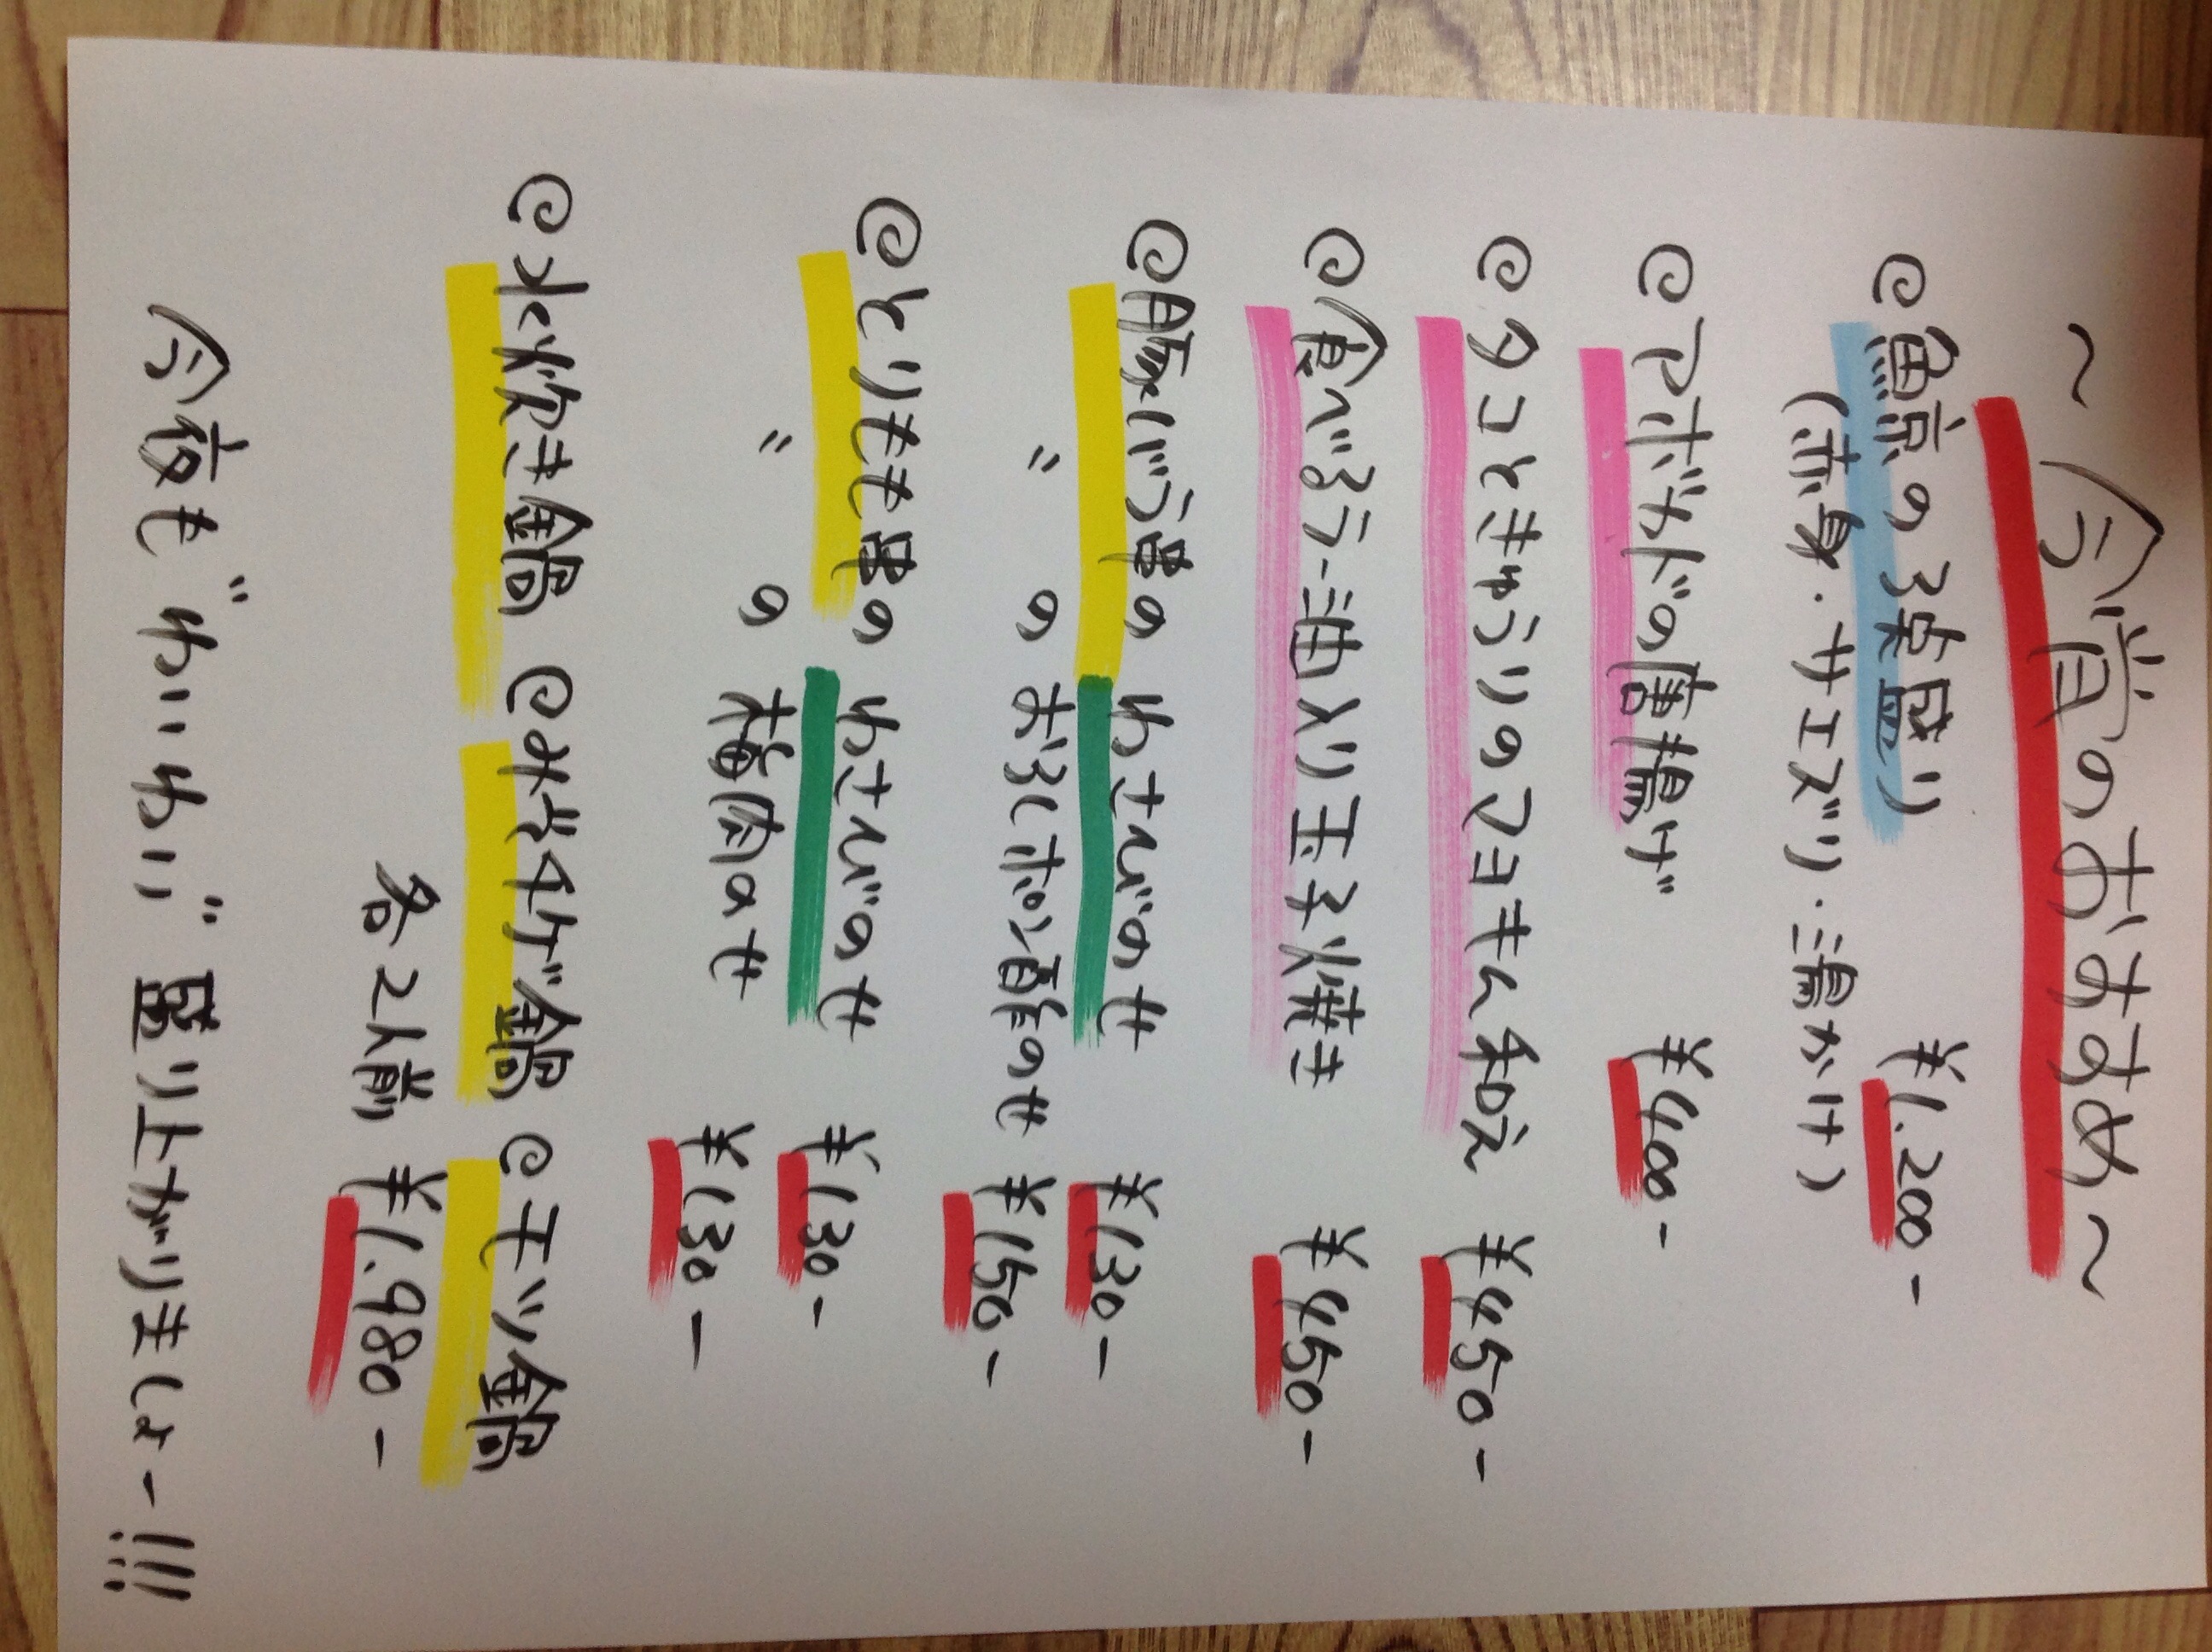 ～今宵のおすすめ～
@鯨の3点盛り ¥1.200-
(赤身・サエズリ・湯かけ)
@アボカドの唐揚げ ¥400-
@タコときゅうりのマヨキム和え ¥450-
@食べるラー油入り玉子焼き ¥450-
@豚バラ串の わさびのせ ¥130-
〃 の おろしポン酢のせ ¥150-
@とりもも串の わさびのせ ¥130-
〃 の 梅肉のせ ¥130-
@水炊き鍋 @みそチゲ鍋 @モツ鍋
各2人前 ¥1.980-
今夜も"わいわい"盛り上がりましょー!!!